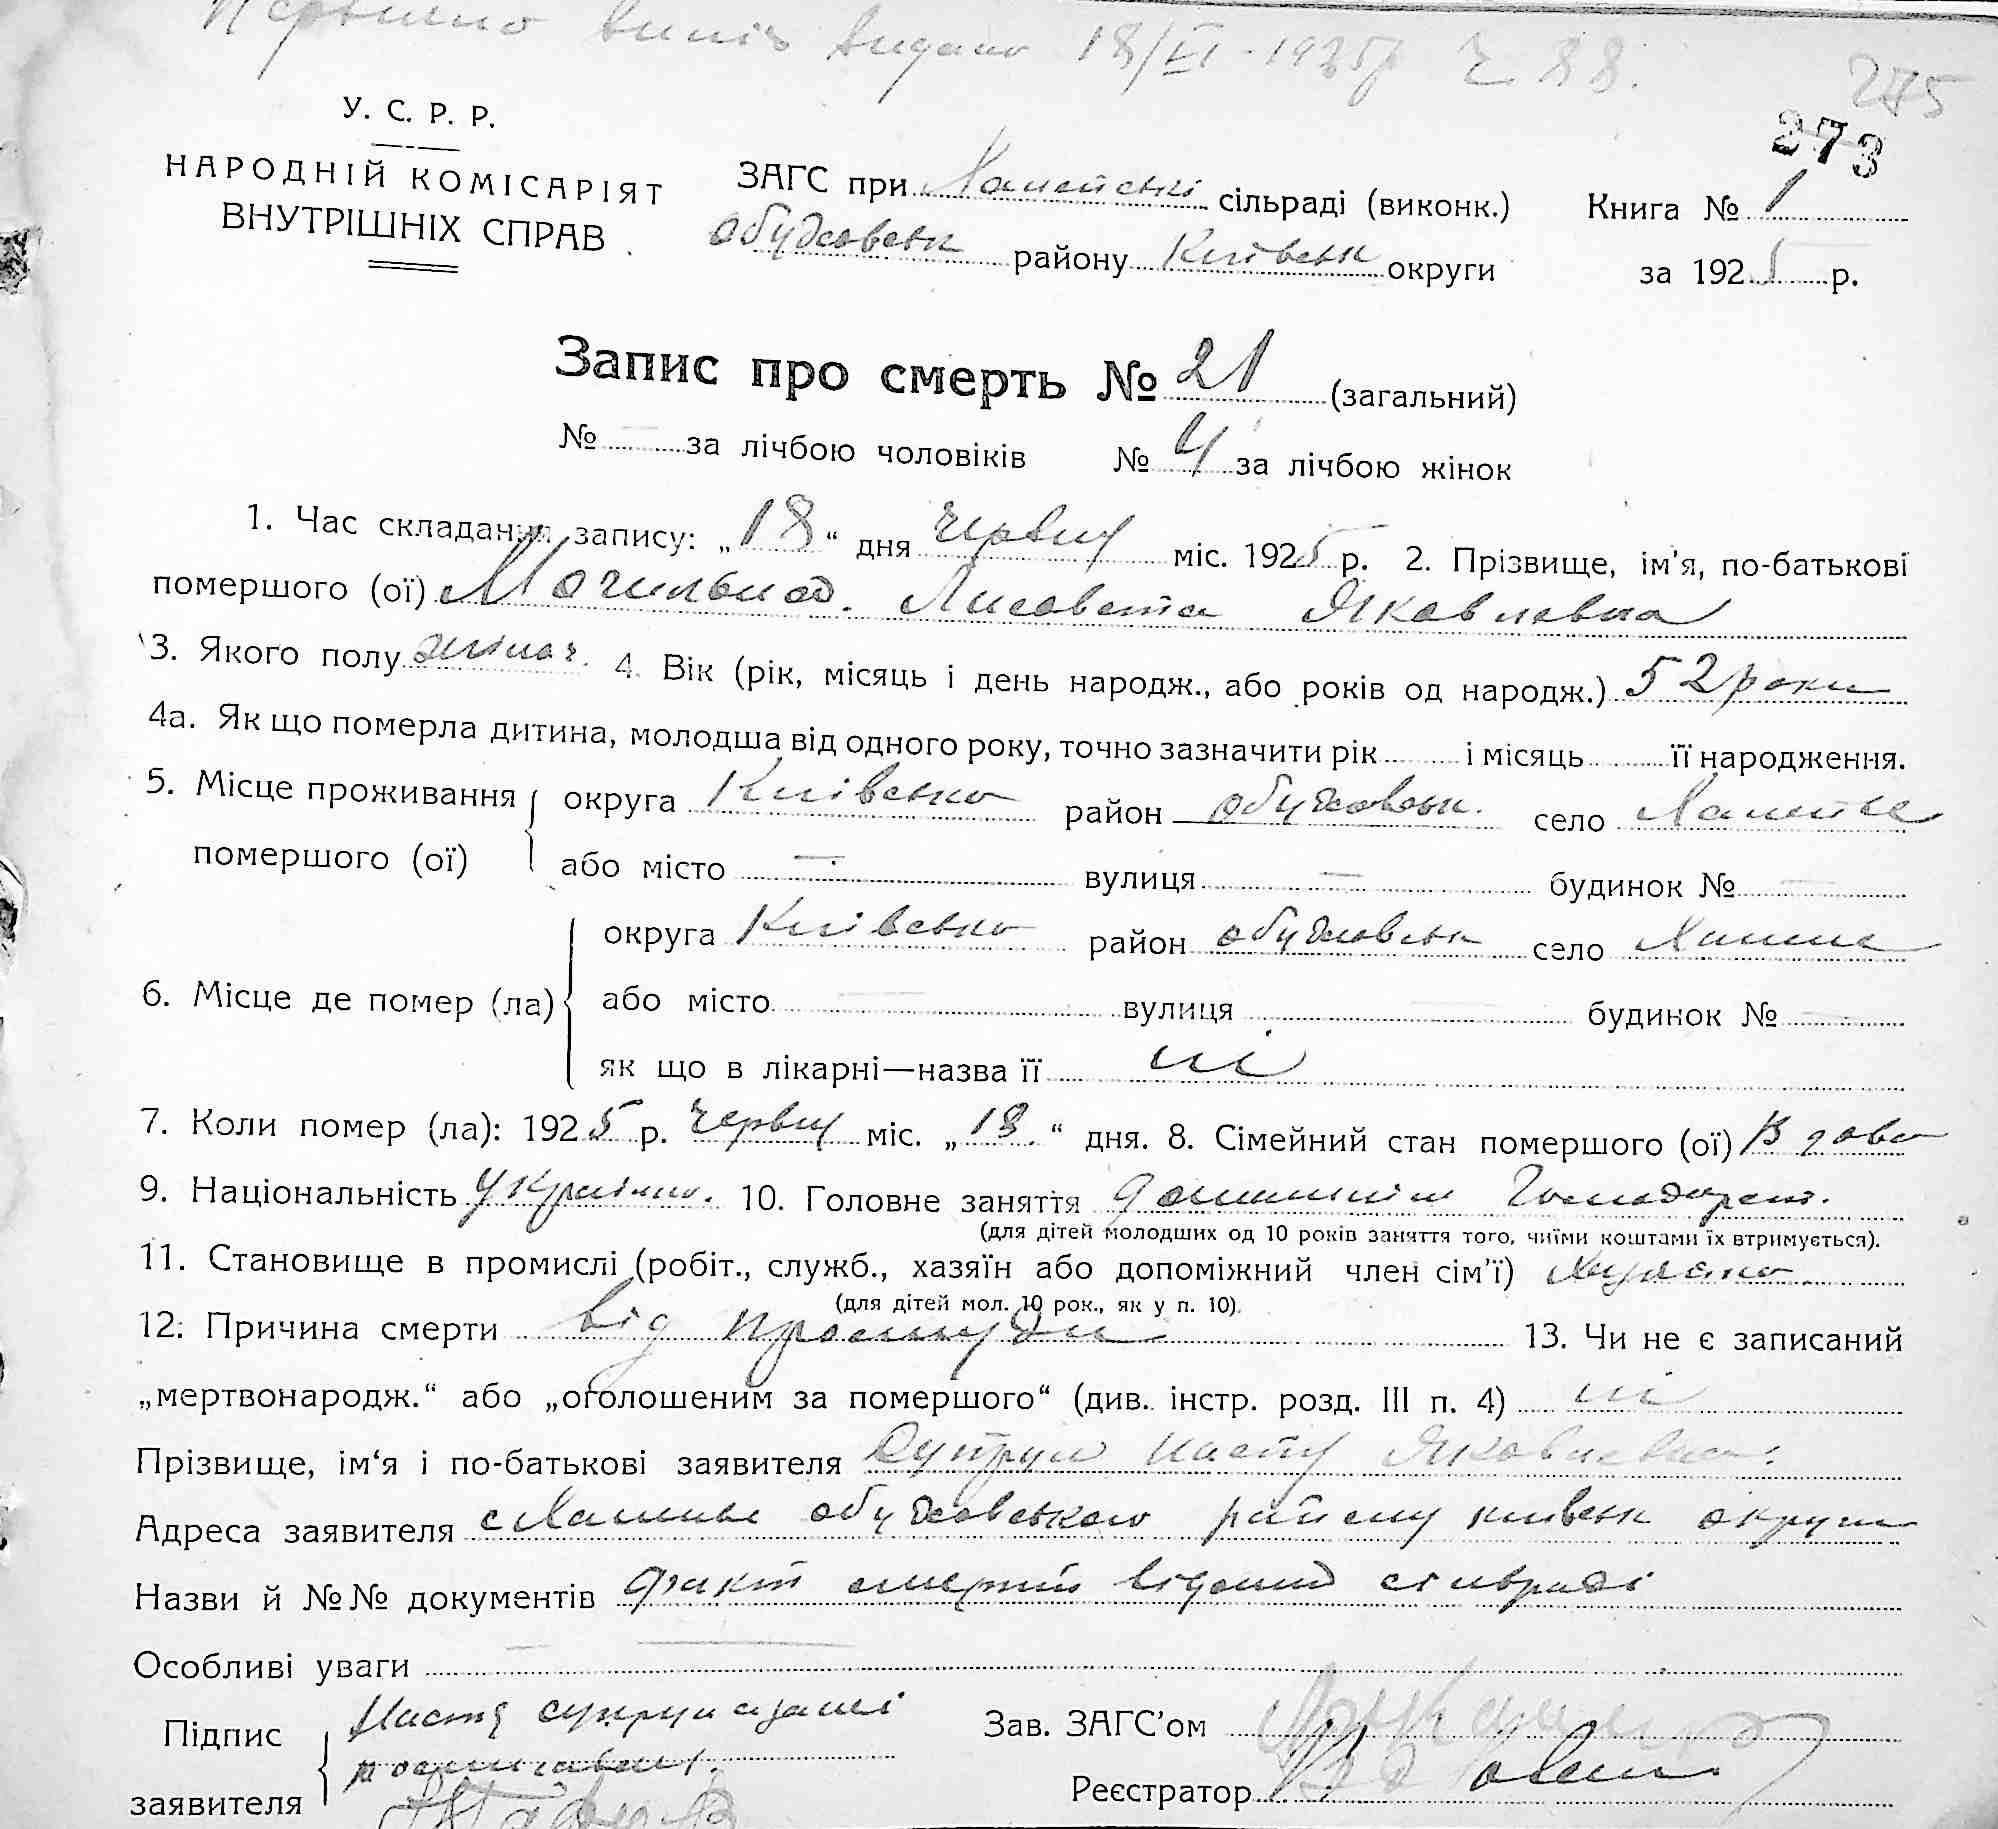 видано 18/VI-1925р Ч 88.
275
273
У. С. Р. Р.
НАРОДНІЙ КОМІСАРІЯТ
ВНУТРІШНІХ СПРАВ
ЗАГС при сільраді (виконк.) Книга № 1
району Київськ округи за 1925 р.
Запис про смерть № 21 (загальний)
№ — за лічбою чоловіків № 4 за лічбою жінок
1. Час складання запису: „18“ дня червця міс. 1925 р. 2. Прізвище, ім'я, по-батькові
помершого (ої) Лисавета Яковлевна
3. Якого полу жіноч. 4. Вік (рік, місяць і день народж., або років од народж.) 52 роки
4а. Як що померла дитина, молодша від одного року, точно зазначити рік і місяць її народження.
5. Місце проживання округа Київська район обуховськ. село
помершого (ої) або місто — вулиця — будинок № —
округа Київська район обуховськ село
6. Місце де помер (ла) або місто — вулиця — будинок № —
як що в лікарні—назва її ні
7. Коли помер (ла): 1925 р. червця міс. „18.“ дня. 8. Сімейний стан помершого (ої) Вдова
9. Національність україн. 10. Головне заняття
(для дітей молодших од 10 років заняття того, чиїми коштами їх втримується).
11. Становище в промислі (робіт., служб., хазяїн або допоміжний член сім'ї)
(для дітей мол. 10 рок., як у п. 10).
12. Причина смерти від простуди 13. Чи не є записаний
„мертвонародж.“ або „оголошеним за помершого“ (див. інстр. розд. III п. 4) ні
Прізвище, ім‘я і по-батькові заявителя Супрун Настя Яковлевна.
Адреса заявителя обуховського району київськ округи
Назви й №№ документів факт смерти відомий сільраді
Особливі уваги —
Підпис Настя Супрун
заявителя
Зав. ЗАГС'ом
Реєстратор